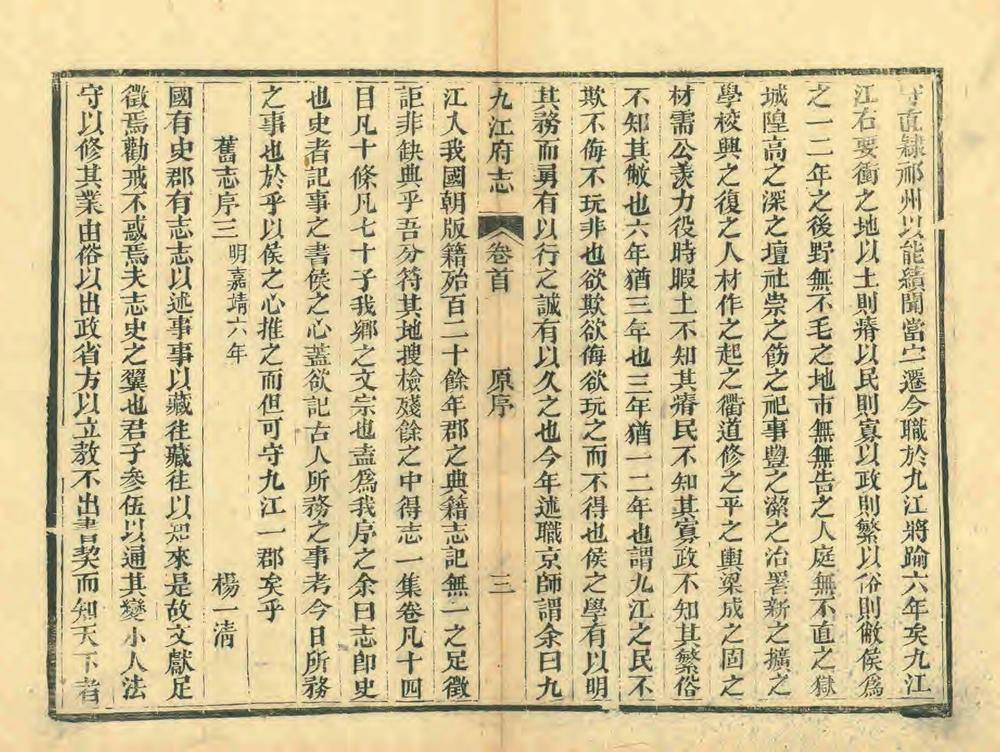 守直隸祁州以能績聞當宁遷今職於九江將踰六年矣九江
江右要衝之地以土則瘠以民則寡以政則繁以俗則敝侯為
之一二年之後野無不毛之地市無無告之人庭無不直之獄
城隍高之深之壇社崇之飭之祀事豐之潔之治署新之擴之
學校興之復之人材作之起之衢道修之平之輿梁成之固之
材需公羨力役時暇土不知其瘠民不知其寡政不知其繁俗
不知其敝也六年猶三年也三年猶一二年也謂九江之民不
欺不侮不玩非也欲欺欲侮欲玩之而不得也侯之學有以明
其務而勇有以行之誠有以久之也今年述職京師謂余曰九
九江府志 卷首 原序 三
江入我國朝版籍殆百二十餘年郡之典籍志記無一之足徵
詎非缺典乎吾分符其地搜檢殘餘之中得志一集卷凡十四
目凡十條凡七十子我鄉之文宗也盍為我序之余曰志卽史
也史者記事之書侯之心蓋欲記古人所務之事考今日所務
之事也於乎以侯之心推之而但可守九江一郡矣乎
舊志序三 明嘉靖六年 楊一清
國有史郡有志志以述事事以藏往藏往以知來是故文獻足
徵焉勸戒不惑焉夫志史之翼也君子參伍以通其變小人法
守以修其業由俗以出政省方以立教不出書契而知天下者